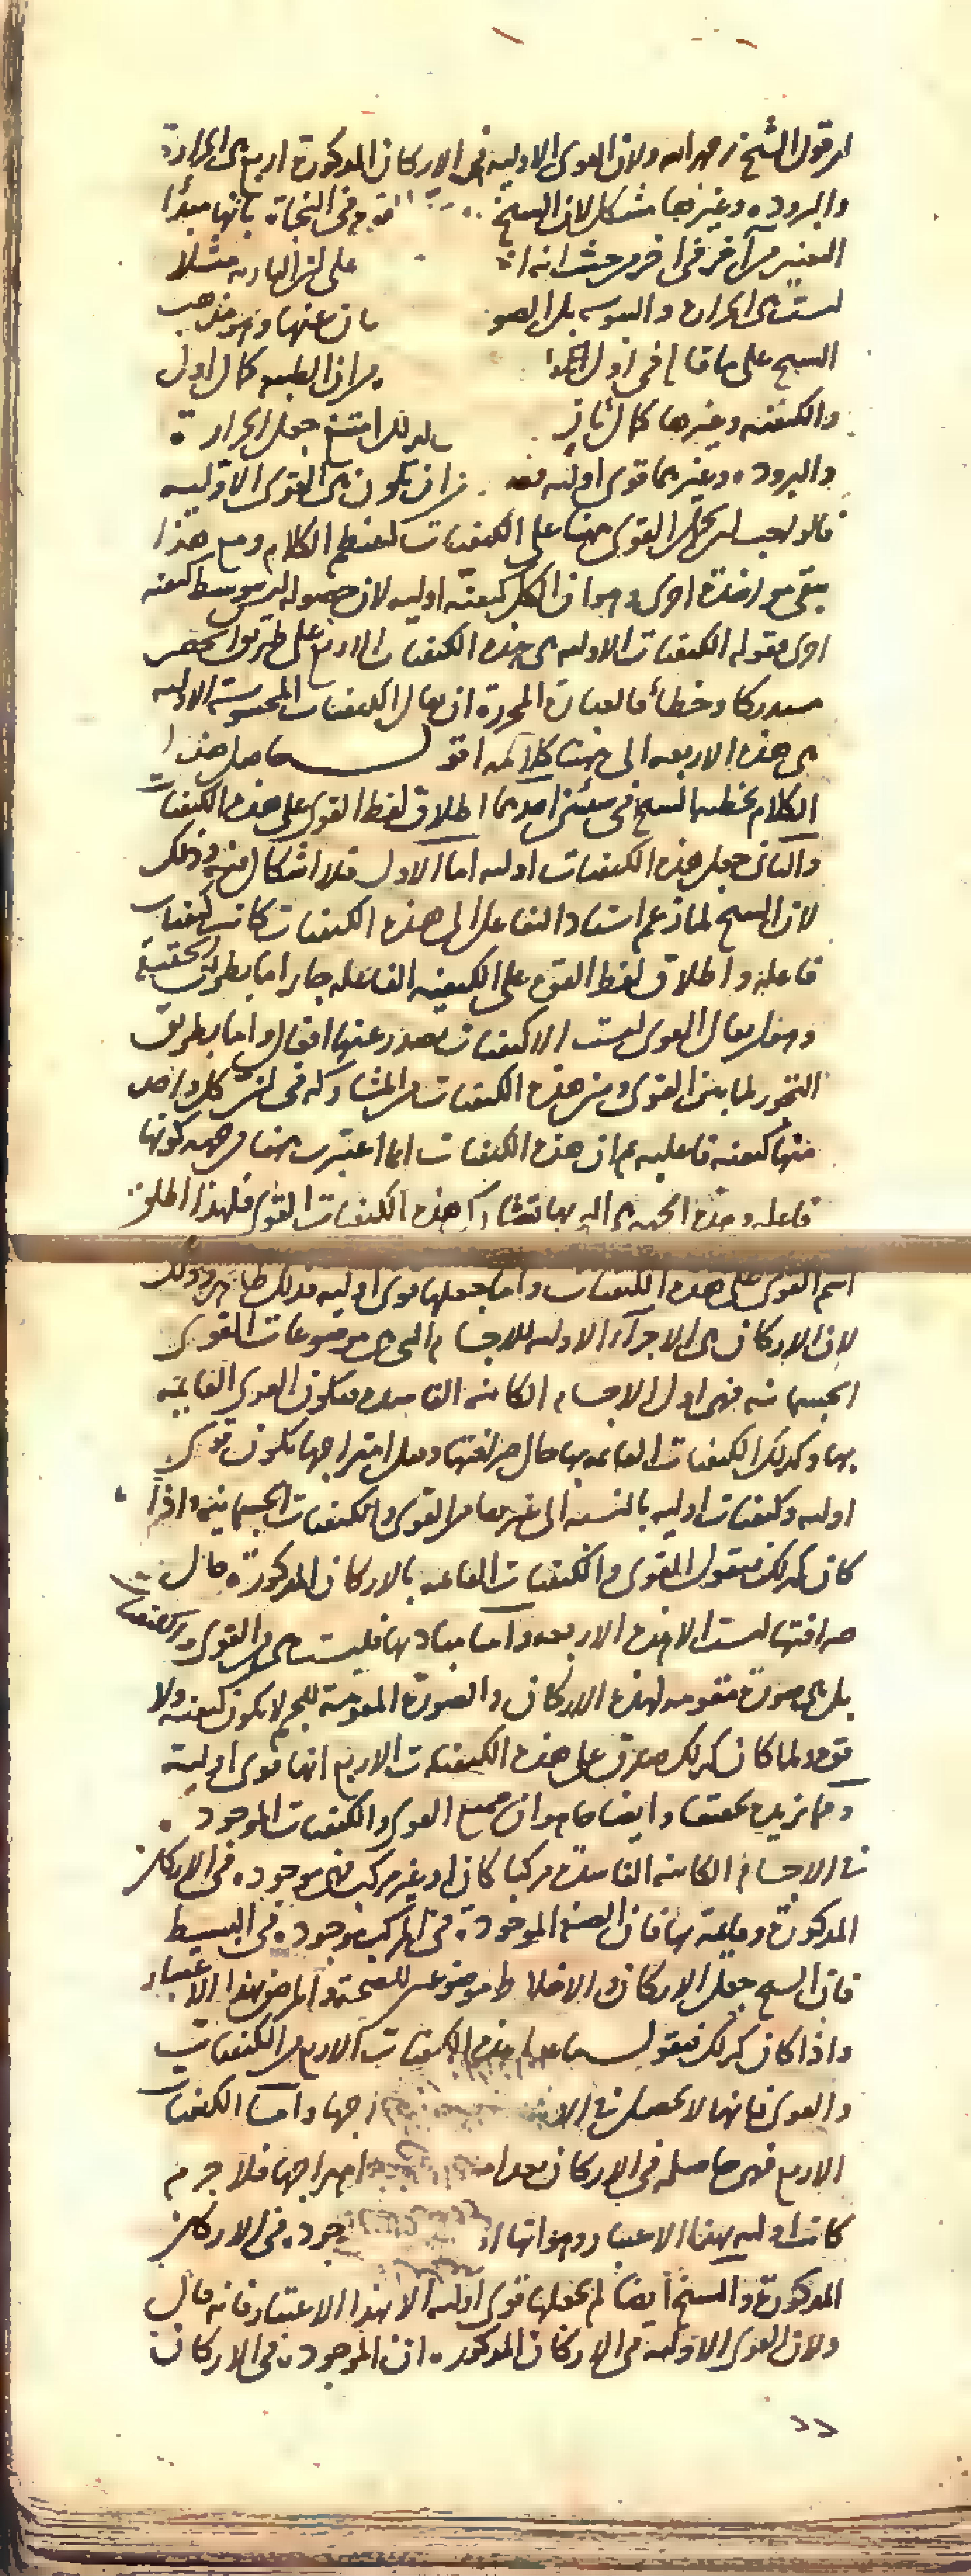 ان قول الشيخ رحمه الله ولان القوى الاولية في الاركان المذكورة اربع هي الحرارة
والبرودة وغيرهما مشكل لان الشيخ في النجاة بانها مبدأ
التغيير من آخر في آخر من حيث انه آخر على ان النارية مثلا
ليست هي الحرارة واليبوسة بل الصو عنها وهو مذهب
الشيخ على ما قاله في اول من ان الطبيعة كمال اول
والكيفية وغيرها كمال ثان لذلك امتنع جعل الحرارة
والبرودة وغيرهما قوى اولية من ان تكون هي القوى الاولية
فالواجب ان تحمل القوى ههنا على الكيفيات لينتظم الكلام ومع هذا
يبقى مواخذة اخرى وهو ان الكل كيفية اولية لان حصولها ليس بتوسط كيفية
اخرى فقوله الكيفيات الاولية هي هذه الكيفيات الاربع على طريق الحصر
مستدركا وخطأ فالعبارة المحررة ان يقال الكيفيات المحسوسة الاولية
هي هذه الاربعة الى ههنا كلامه اقول حاصل هذا
الكلام تخطئة الشيخ في شيئين احدهما اطلاق لفظ القوى على هذه الكيفيات
والثاني جعل هذه الكيفيات اولية اما الاول فلا اشكال فيه وذلك
لان الشيخ لما زعم استناد التفاعل الى هذه الكيفيات كانت كيفيات
فاعلة واطلاق لفظ القوة على الكيفية الفاعلة جاز اما بطريق الحقيقة
وهو ان يقال القوى ليست الا كيفيات يصدر عنها افعال واما بطريق
التجوز لما بين القوى وبين هذه الكيفيات من المشاركة في ان كل واحد
منها كيفية فاعلية ثم ان هذه الكيفيات انما اعتبرت ههنا من جهة كونها
فاعلة وهذه الجهة هي التي بها تشارك هذه الكيفيات القوى فلهذا اطلق
اسم القوى على هذه الكيفيات واما جعلها قوى اولية فذلك ظاهر وذلك
لان الاركان هي الاجزاء الاولية للاجسام التي هي موضوعات القوى
الجسمانية فهي اول الاجسام الكائنة الفاسدة فتكون القوى القائمة
بها وكذلك الكيفيات القائمة بها حال صرافتها وقبل امتزاجها تكون قوى
اولية وكيفيات اولية بالنسبة الى غيرها من القوى والكيفيات الجسمانية واذا
كان كذلك فنقول القوى والكيفيات القائمة بالاركان المذكورة حال
صرافتها ليست الا هذه الاربعة واما مباديها فليست هي من القوى والكيفيات
بل هي صورة مقومة لهذه الاركان والصورة المقومة للجسم لا تكون كيفية ولا
قوة ولما كان كذلك صدق على هذه الكيفيات الاربع انها قوى اولية
ومما يزيده تحقيقا وايضاحا هو ان جميع القوى والكيفيات الموجودة
في الاجسام الكائنة الفاسدة مركبا كان او غير مركب فهي موجودة في الاركان
المذكورة وقائمة بها فان الصفة الموجودة في المركب موجودة في البسيط
فان الشيخ جعل الاركان والاخلاط موضوعين للصحة والمرض بهذا الاعتبار
واذا كان كذلك فنقول ما عدا هذه الكيفيات الاربع من الكيفيات
والقوى فانها لا تحصل في اجها واما الكيفيات
الاربع فهي حاصلة في الاركان امتزاجها فلا جرم
كانت اولية بهذا الاعتبار وهو انها جودة في الاركان
المذكورة والشيخ ايضا لم يجعلها قوى اولية الا بهذا الاعتبار فانه قال
ولان القوى الاولية في الاركان المذكورة اذن الموجودة في الاركان